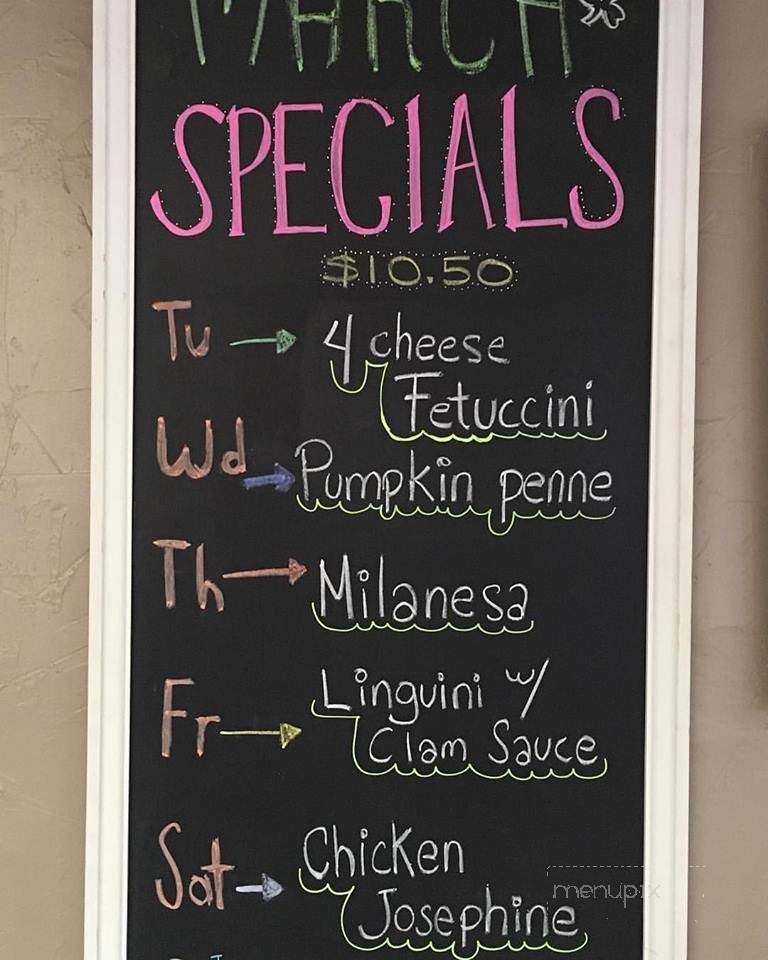 MARCH
SPECIALS
$10.50
Tu → 4 cheese
Fetuccini
Wd → Pumpkin penne
Th → Milanesa
Fr → Linguini w/
Clam Sauce
Sat → Chicken
Josephine
menupix